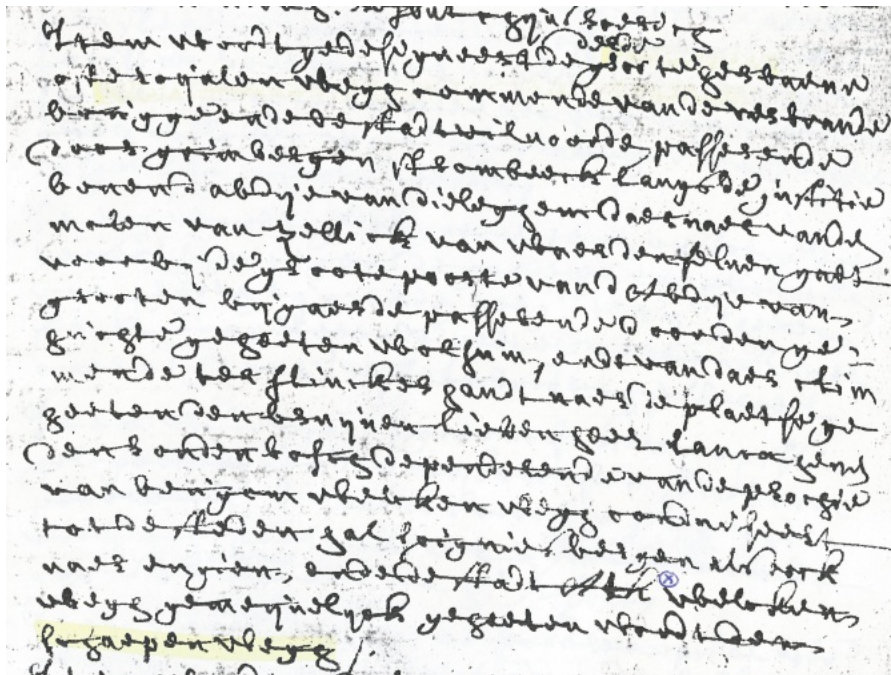 Item wordt gedesigneert de groote heerbaene
ofte royalen wegh commende vande verbrande
brugge ende de stadt vilvoorde passerende
door grimbergen strombeeck langs de justitie
benend abdye van dieleghem daer naer vande
molen van zellick van waer den selven gaet
voorbij de groote poorte vand abdye van
grooten bijgaerde passerende door den ge=
huchte geheeten wolsum, ende van daer clim
mende ter slincker handt naer de plaetse ge
heeten den bruynen lieven heer lanx hend
den ronden bosch dependerende vande prochie
van berghem welcken wegh conduiseert
tot de steden hal soignies bergen als oock
naer engien, ende de stadt ath welcken
wegh gemeynelyck geheeten wordt den
schaepen wegh /.